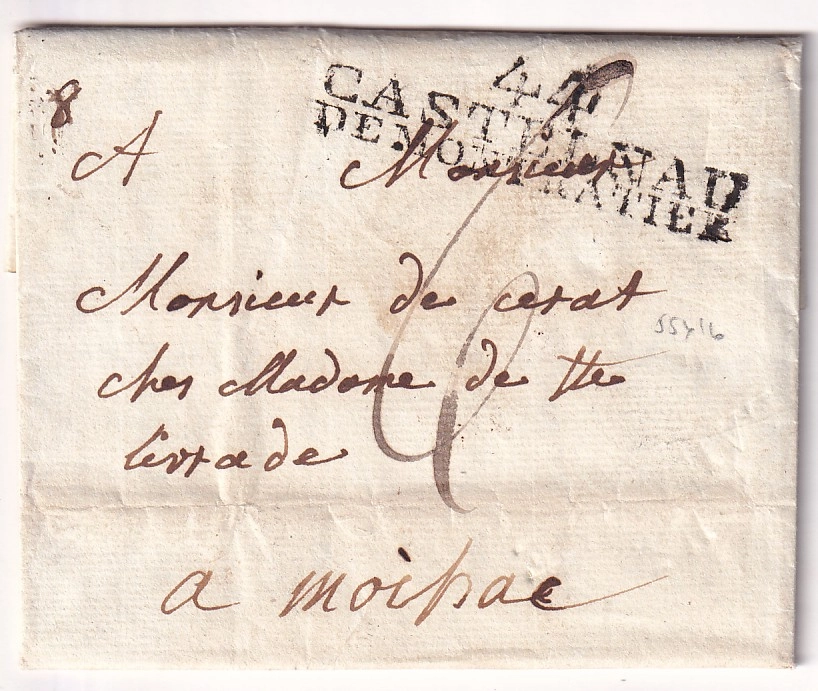 8
44
CASTELNAU
DE MONTRATIER
A Monsieur
Monsieur de cerat
ches Madame de Ste
livrade
a moissac